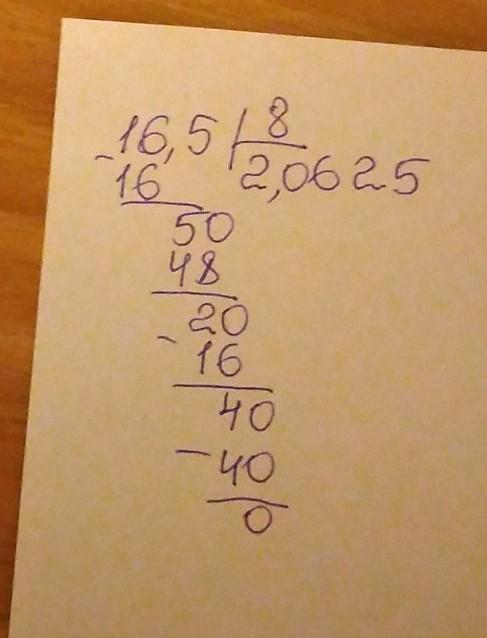 16,5 8
- 16 2,0625
50
48
20
- 16
40
- 40
0